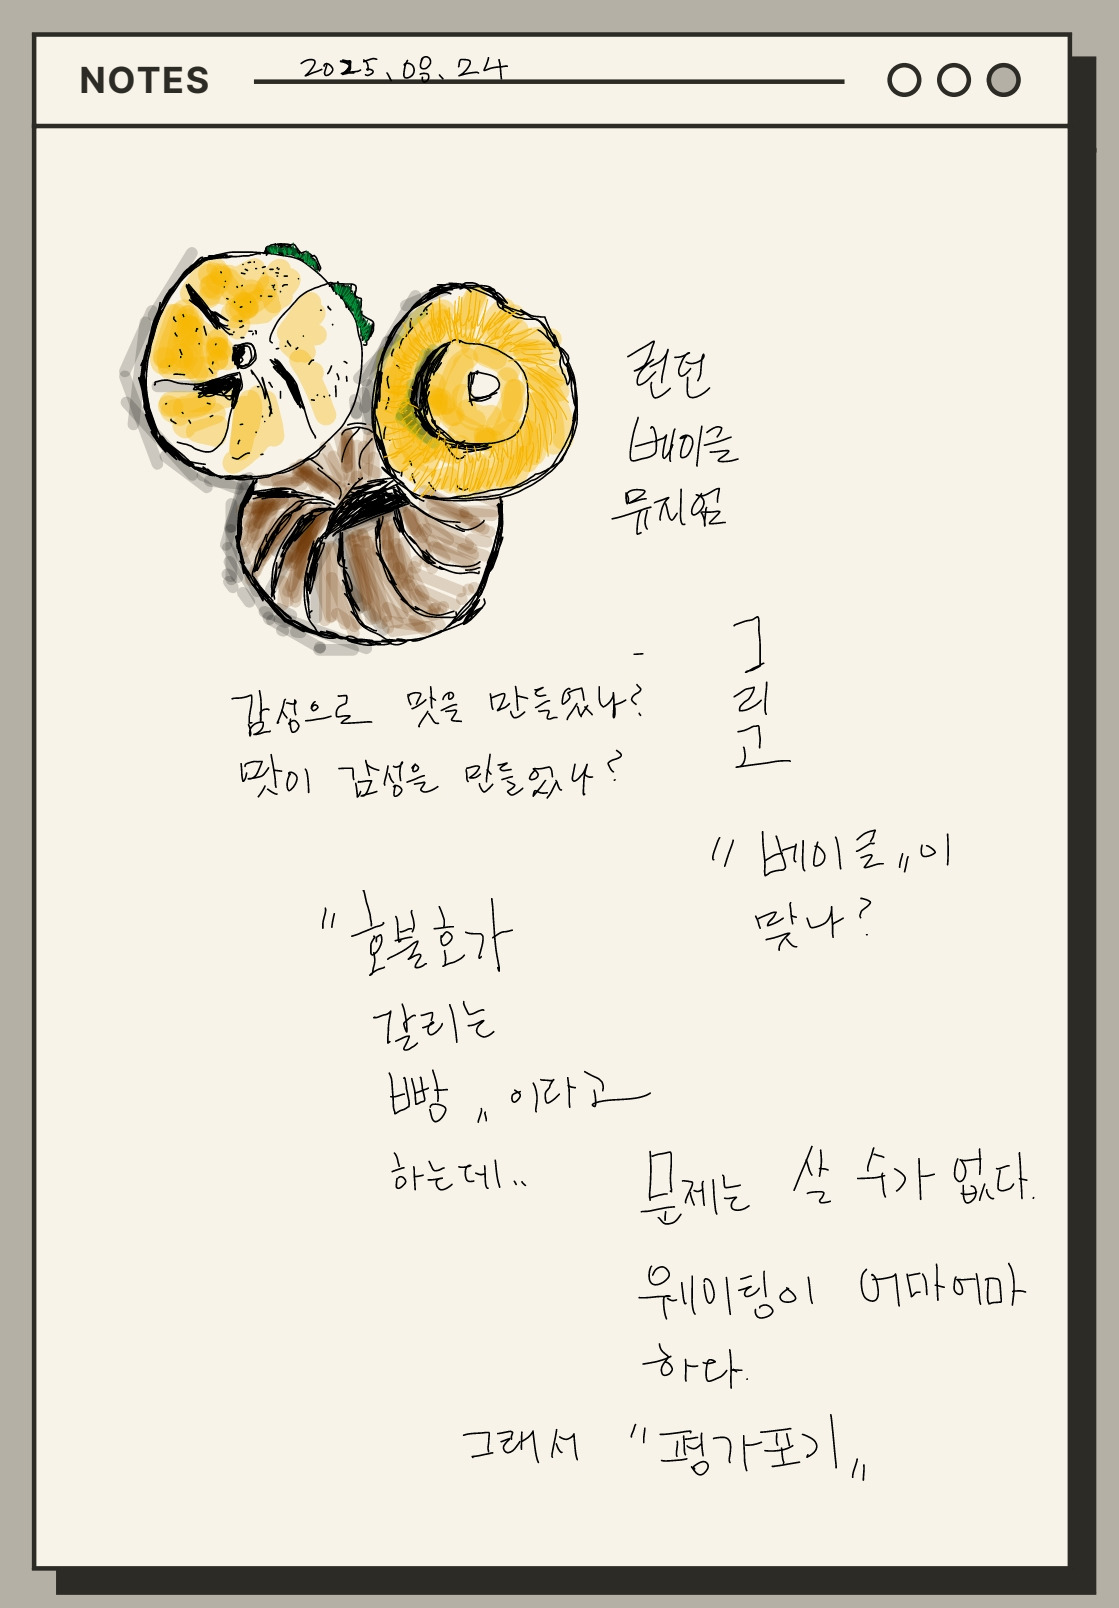 NOTES 2025.08.24
런던
베이글
뮤지엄
감성으로 맛을 만들었나?
맛이 감성을 만들었나?
그
리
고
"베이글"이
맞나?
"호불호가
갈리는
빵"이라고
하는데..
문제는 살 수가 없다.
웨이팅이 어마어마
하다.
그래서 "평가포기"